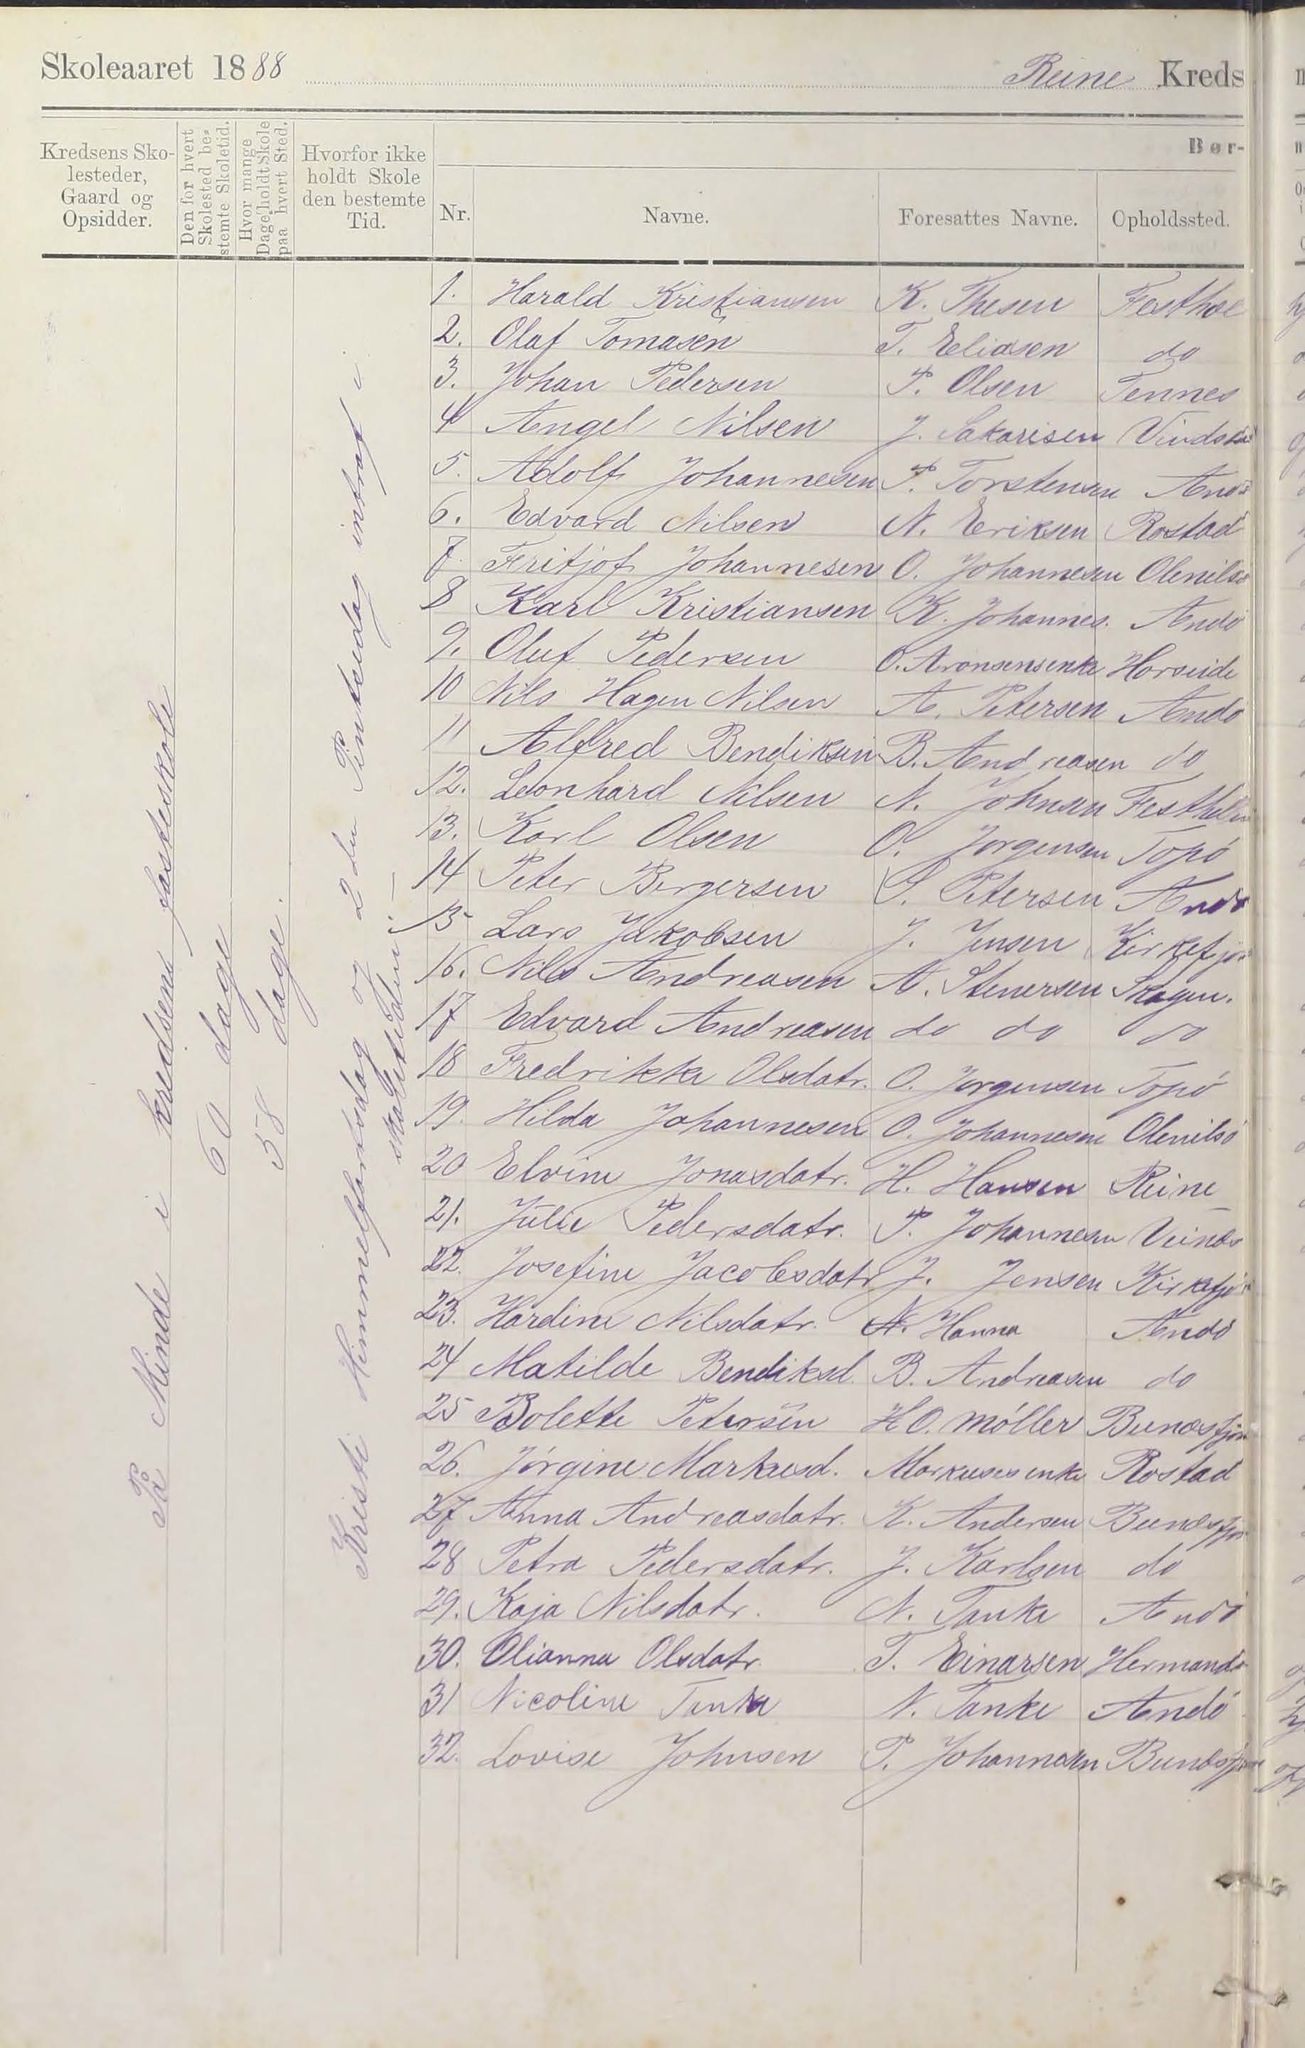 Skoleaaret 1888 Reine Kreds
Bør-
Kredsens Sko-
lesteder,
Gaard og
Opsidder.
Den for hvert
Skolested be-
stemte Skoletid.
Hvor mange
Dage holdt Skole
paa hvert Sted.
Hvorfor ikke
holdt Skole
den bestemte
Tid.
Nr. Navne. Foresattes Navne. Opholdssted.
På Minde i kredsens fasteskole
60 dage
58 dage.
Kristi Himmelfartsdag og 2den Pintsedag indtraf i
skoletiden.
1. Harald Kristiansen K. Thesen Festhæl
2. Olaf Tomasen T. Eliasen do
3. Johan Pedersen P. Olsen Tennes
4 Angel Nilsen J. Sakarisen
5. Adolf Johannesen P. Torstensen Andö
6. Edvard Nilsen N. Eriksen Rostad
7. Fritjof Johannesen O. Johannesen Olenilsö
8 Karl Kristiansen K. Johannes. Andö
9. Oluf Pedersen O. Aronsensenke Horseide
10 Nils Hagen Nilsen A. Petersen Andö
11 Alfred Bendiksen B. Andreasen do
12. Leonhard Nilsen N. Johnsen
13. Karl Olsen O. Jørgensen Topö
14 Peter Birgersen Petersen Andö
15 Lars Jakobsen J. Jensen Kirkefjor
16. Nils Andreasen A. Stenersen Skagen.
17 Edvard Andreasen do do do
18 Fredrikke Olsdatr. O. Jørgensen Topö
19. Hilda Johannesen O. Johannesen Olenilsö
20 Elvine Jonasdatr. H. Hansen Reine
21. Julie Pedersdatr. P. Johannesen
22. Josefine Jacobsdatr J. Jensen Kirkefjor
23. Hardine Nilsdatr. N. Hanna Andö
24 Matilde Bendiksd. B. Andreasen do
25 Bolette Petersen H O. Möller Bunesfjor
26. Jörgine Markusd. Markuses enke Rostad
27 Anna Andreasdatr. K. Andersen Bunesfjor
28 Petra Pedersdatr. J. Karlsen do
29. Kaja Nilsdatr. N. Tanke Andö
30. Olianna Olsdatr. T. Einarsen Hermandö
31 Nicoline Tanke N. Tanke Andö
32. Lovise Johnsen P. Johannesen Bunesfjor